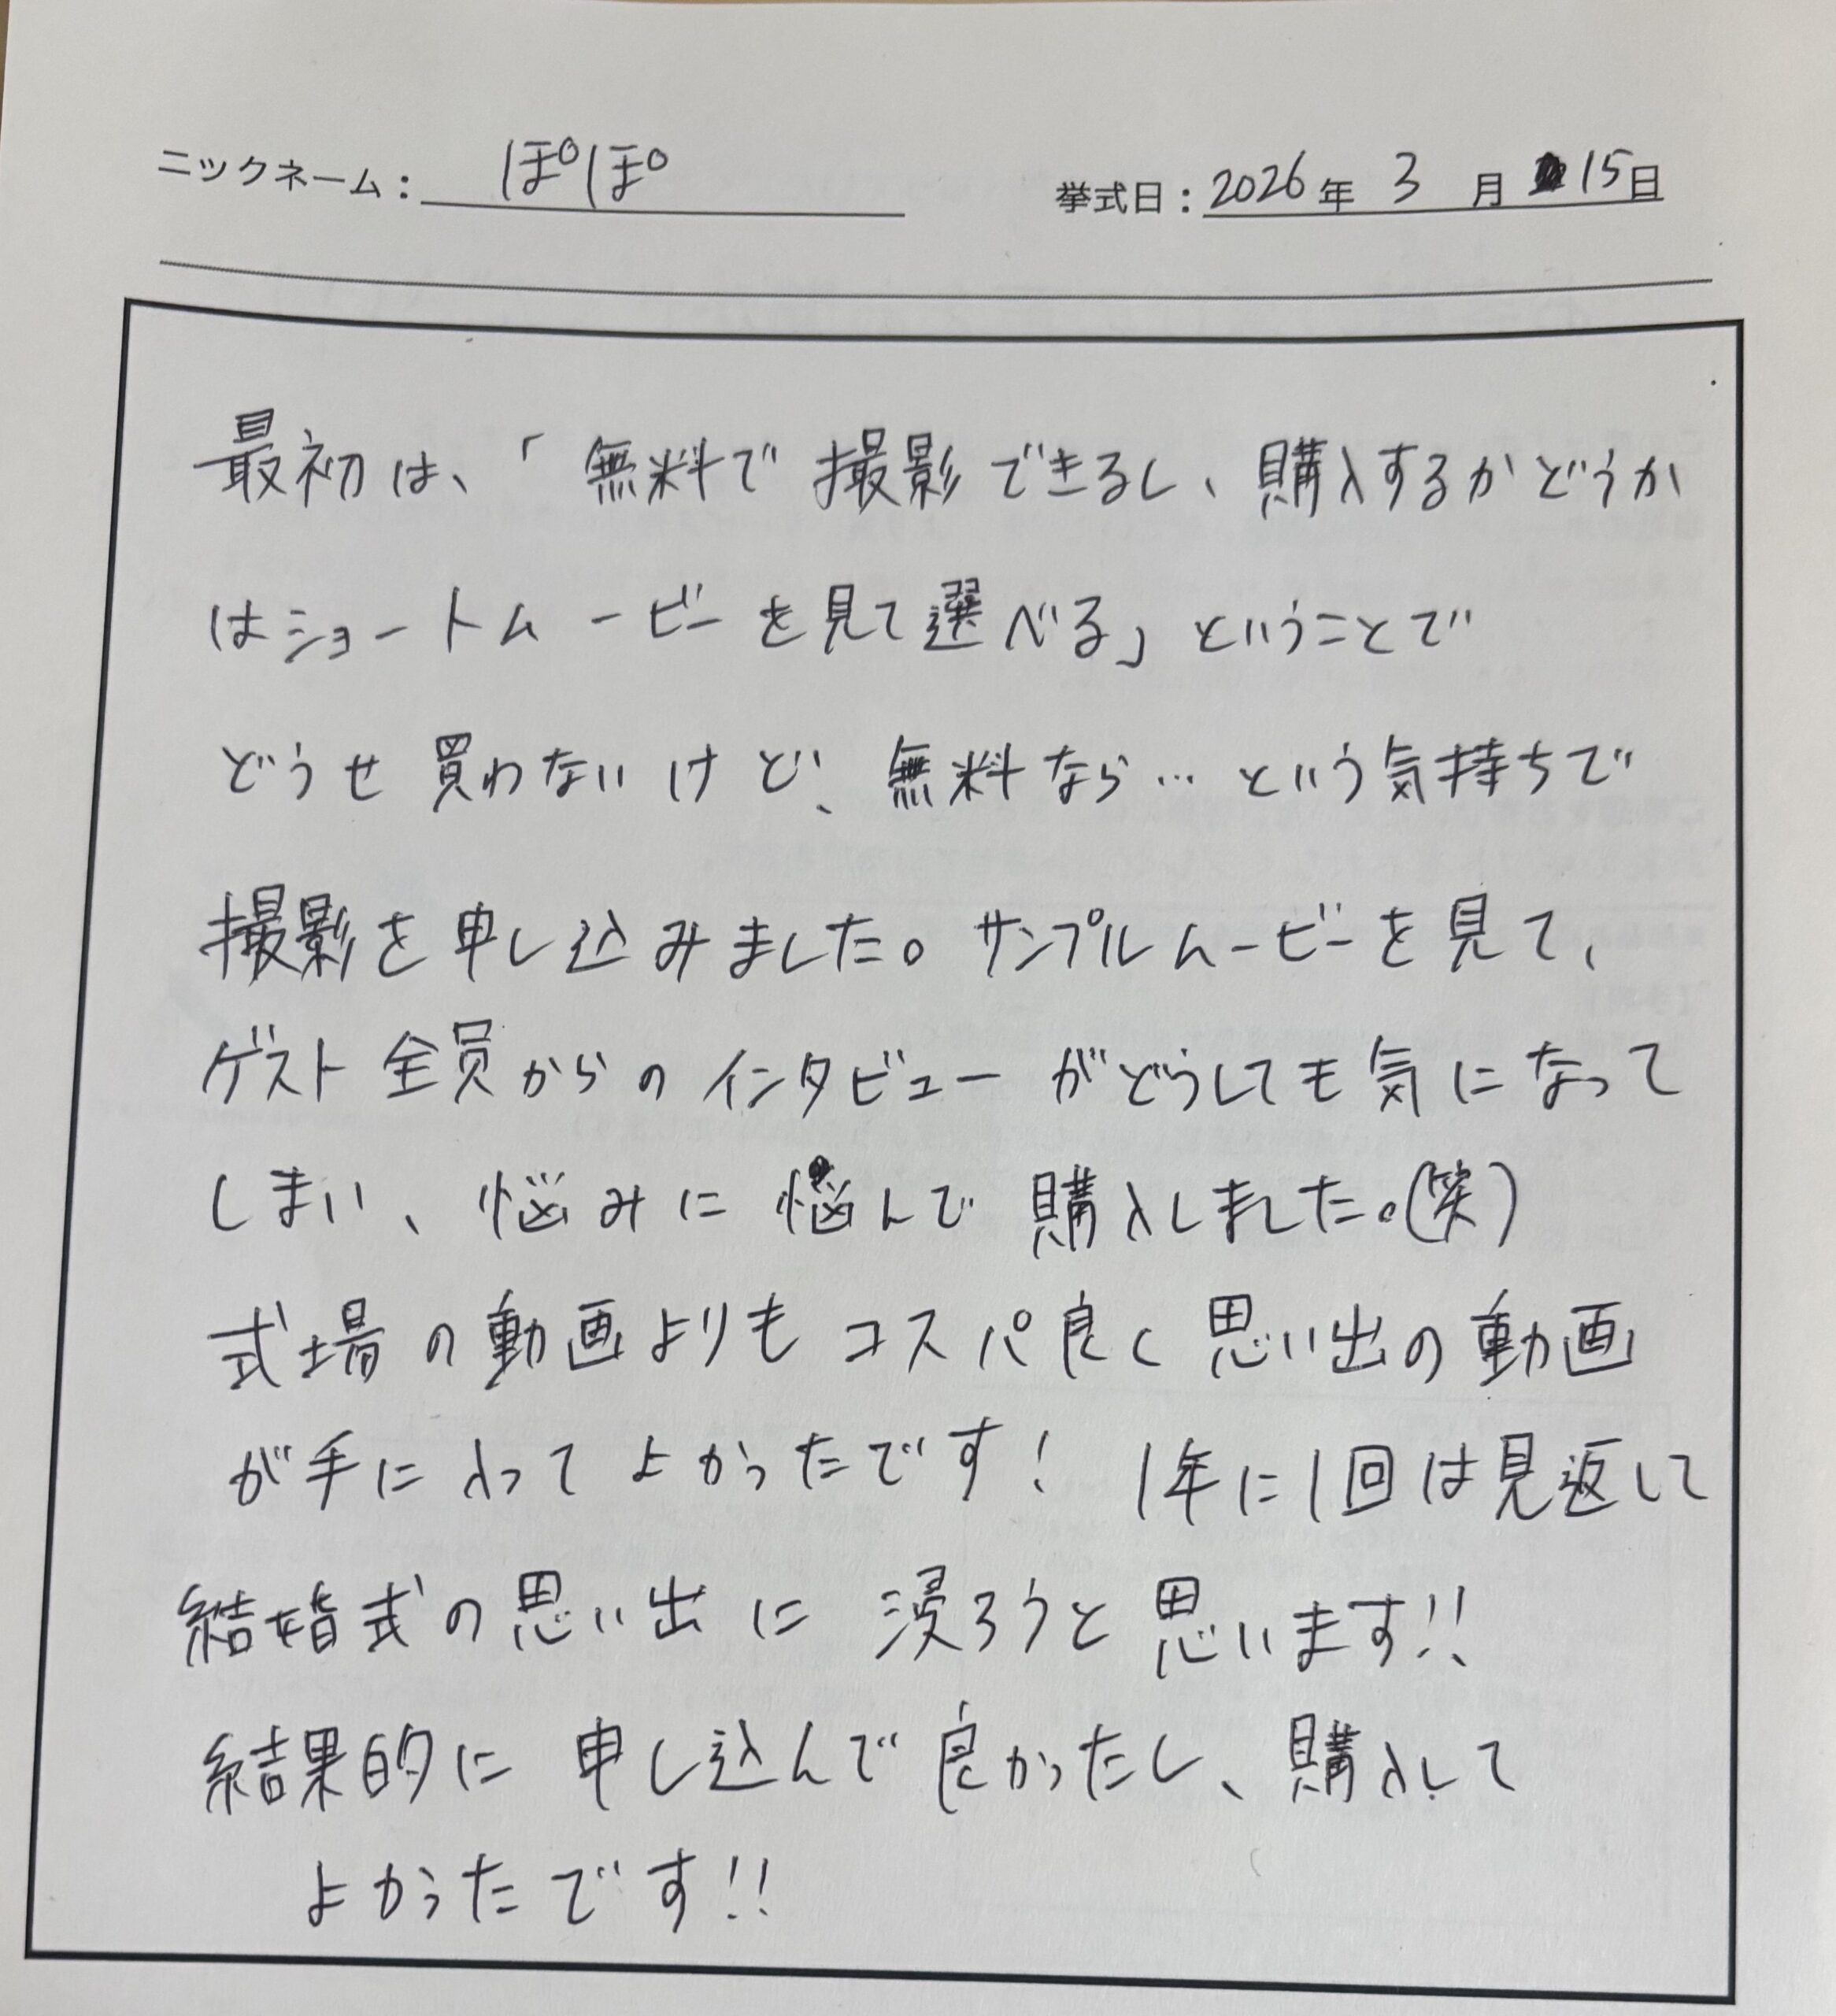 ニックネーム：ぽぽ
挙式日：2026年 3月 15日
最初は、「無料で撮影できるし、購入するかどうか
はショートムービーを見て選べる」ということで
どうせ買わないけど、無料なら…という気持ちで
撮影を申し込みました。サンプルムービーを見て、
ゲスト全員からのインタビューがどうしても気になって
しまい、悩みに悩んで購入しました。(笑)
式場の動画よりもコスパ良く思い出の動画
が手に入ってよかったです! 1年に1回は見返して
結婚式の思い出に浸ろうと思います!!
結果的に申し込んで良かったし、購入して
よかったです!!